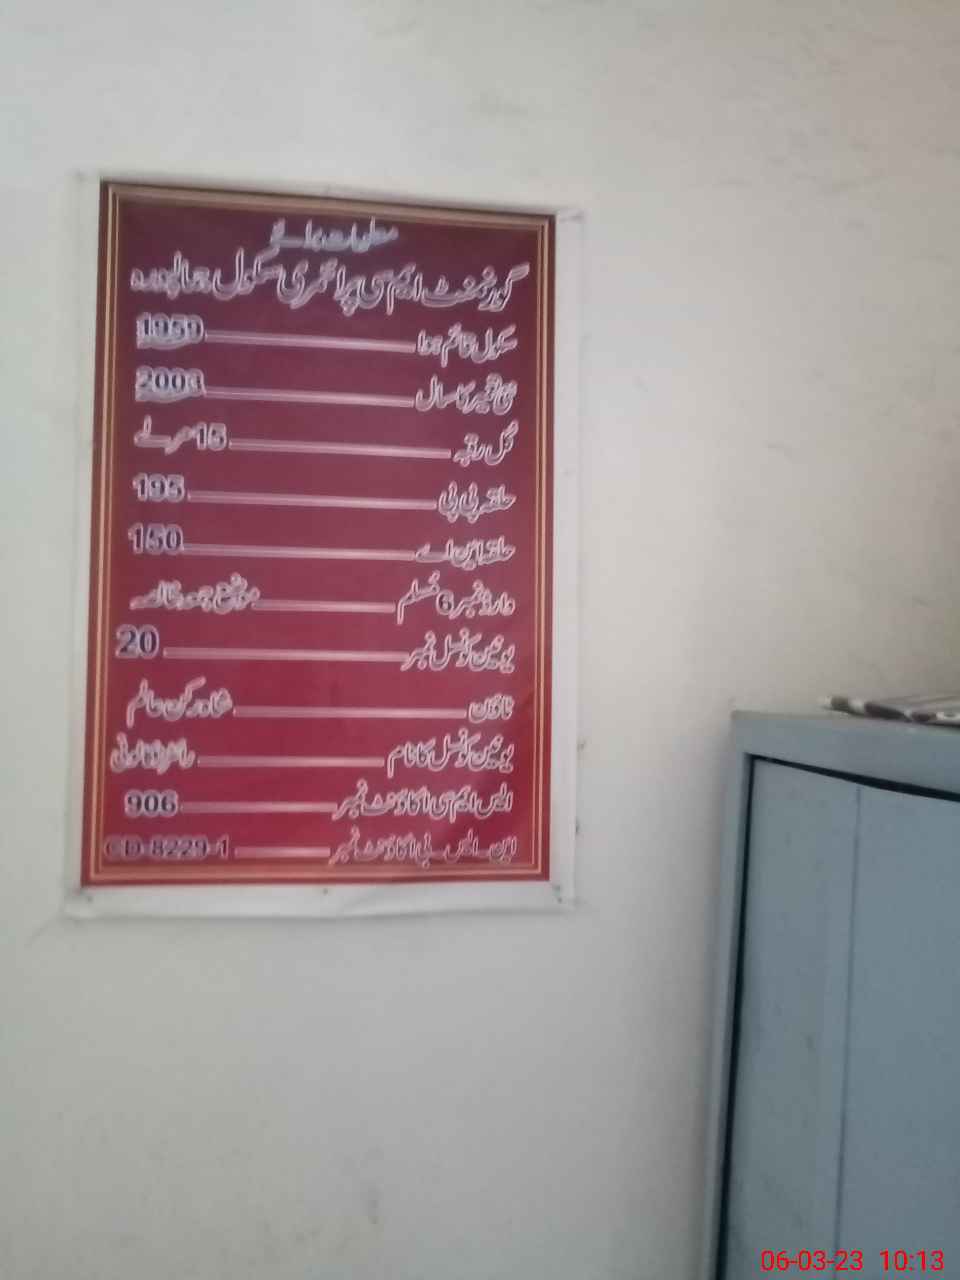 معلومات برائے
گورنمنٹ ایم سی پرائمری سکول جمالپورہ
سکول قائم ہوا 1959
نئی تعمیر کا سال 2003
کل رقبہ 15 مرلے
حلقہ پی پی 195
حلقہ این اے 150
وارڈ نمبر 6 مسلم موضع جمعہ خالصہ
یونین کونسل نمبر 20
ٹاؤن شاہ رکن عالم
یونین کونسل کا نام رائٹرز کالونی
ایس ایم سی اکاؤنٹ نمبر 906
این۔ایس۔بی اکاؤنٹ نمبر CD-8229-1
06-03-23 10:13